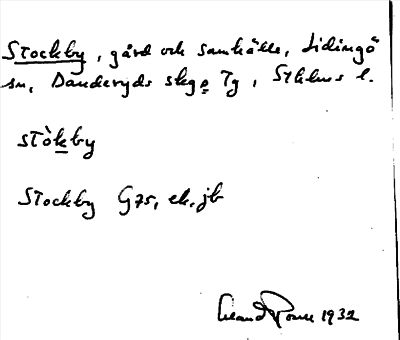 Stockby, gård och samhälle, Lidingö
sn, Danderyds skgs Tg, Sthlms l.
stòkby
Stockby G75, ek, jb
1932